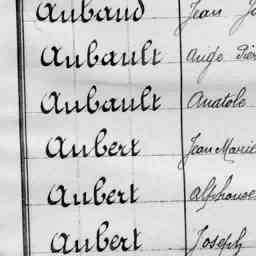 Aubaud Jean
Aubault Ange
Aubault Anatole
Aubert Jean Marie
Aubert Alphonse
Aubert Joseph